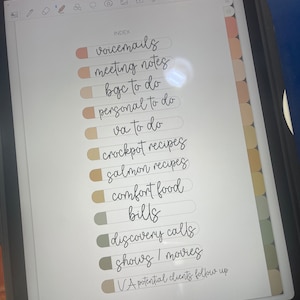 INDEX
voicemails
meeting notes
bgc to do
personal to do
va to do
crockpot recipes
salmon recipes
comfort food
bills
discovery calls
shows / movies
VA potential clients follow up